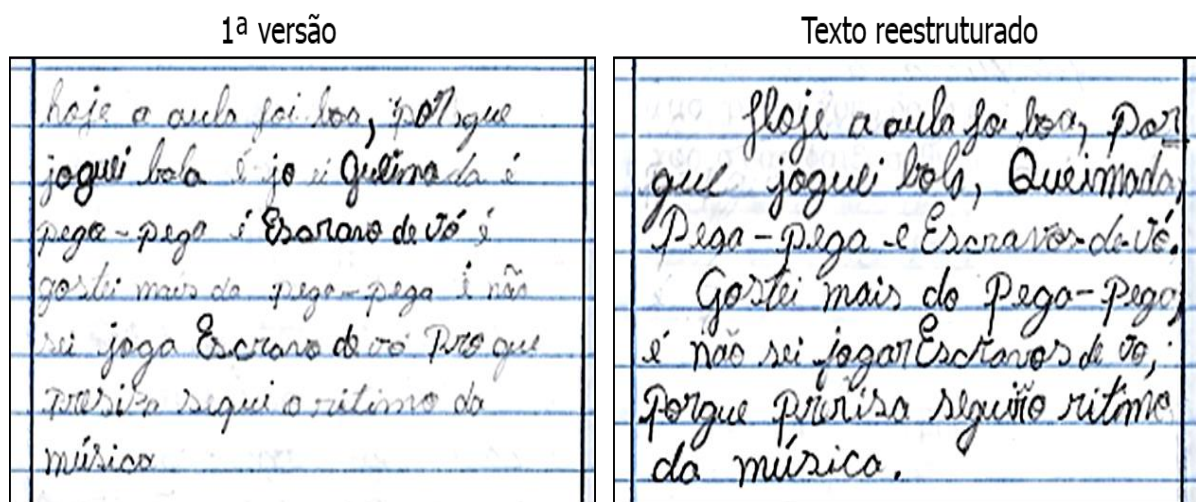 1ª versão
hoje a aula foi boa, porque
joguei bola é jo ei Queimada é
pega-pega é Escravo de vó é
gostei mais da pega-pega é não
sei joga Escravo de vó Pro que
presiza segui o ritimo da
música
Texto reestruturado
Hoje a aula foi boa, Por
que joguei bola, Queimada,
Pega-pega e Escravos-de-vó.
Gostei mais do Pega-Pega,
é não sei jogar Escravos de vó,
Porque Precisa seguir o ritimo
da música.